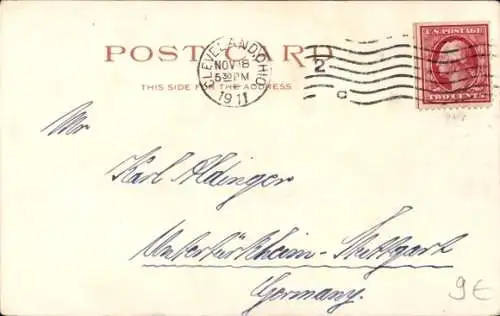 POST CARD
THIS SIDE FOR THE ADDRESS
CLEVELAND, OHIO
NOV 18
530 PM
1911
2
C
U.S. POSTAGE
TWO CENTS
Mr
Karl Aldinger
Untertürkheim-Stuttgart
Germany.
9€